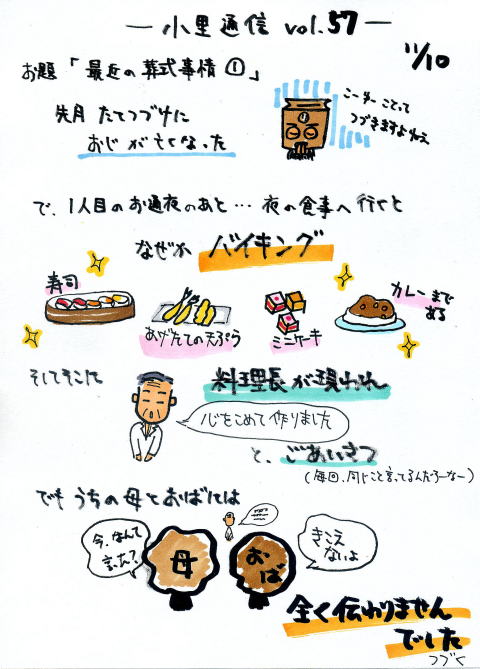 小里通信 vol.57
11/10
お題「最近の葬式事情①」
先月 たてつづけに
おじが亡くなった
こーゆーことって
つづきますよねえ
で、1人目のお通夜のあと…夜の食事へ行くと
なぜか バイキング
寿司
あげたての天ぷら
ミニケーキ
カレーまで
ある
そしてそこに
料理長が現われ
心をこめて作りました
と、ごあいさつ
(毎回、同じこと言ってるんだろーなー)
でも うちの母とおばには
今、なんて
言った?
母
おば
きこえ
ないよ
全く伝わりません
でした
つづく